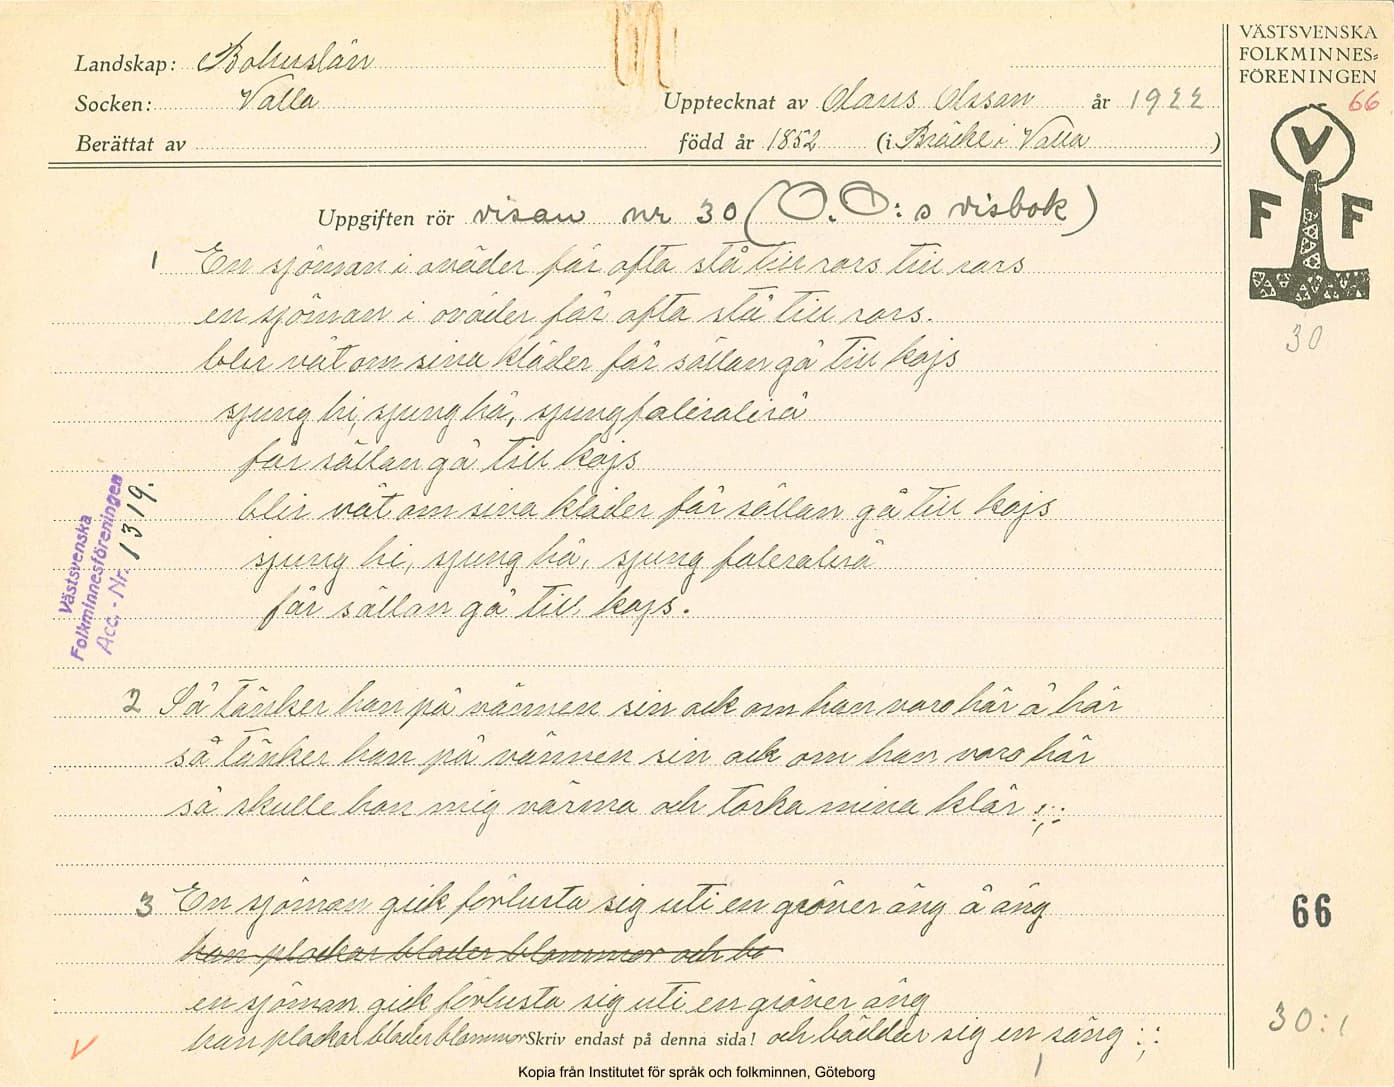 Landskap: Bohuslän
Socken: Valla
Berättat av
Upptecknat av Olaus Olsson år 1922
född år 1852 (i Bräcke i Valla)
VÄSTSVENSKA
FOLKMINNES=
FÖRENINGEN
66
V
F F
30
Uppgiften rör visan nr 30 (O. O:s visbok)
1 En sjöman i oväder får ofta stå till rors till rors
en sjöman i oväder får ofta stå till rors.
blir våt om sina kläder får sällan gå till kojs
sjung hi, sjung hå, sjungfaleralerå
får sällan gå till kojs
blir våt om sina kläder får sällan gå till kojs
sjung hi, sjung hå, sjung faleralerå
får sällan gå till kojs.
Västsvenska
Folkminnesföreningen
Acc. - Nr. 1319.
2 Så tänker han på vännen sin ack om han voro här å här
så tänker han på vännen sin ack om han voro här
så skulle han mig värma och torka mina klär :;:
3 En sjöman gick förlusta sig uti en gröner äng å äng
han plockar blader blommor och bä
en sjöman gick förlusta sig uti en gröner äng
han plockar blader blommor och bäddar sig en säng :;:
Skriv endast på denna sida!
66
30:1
Kopia från Institutet för språk och folkminnen, Göteborg